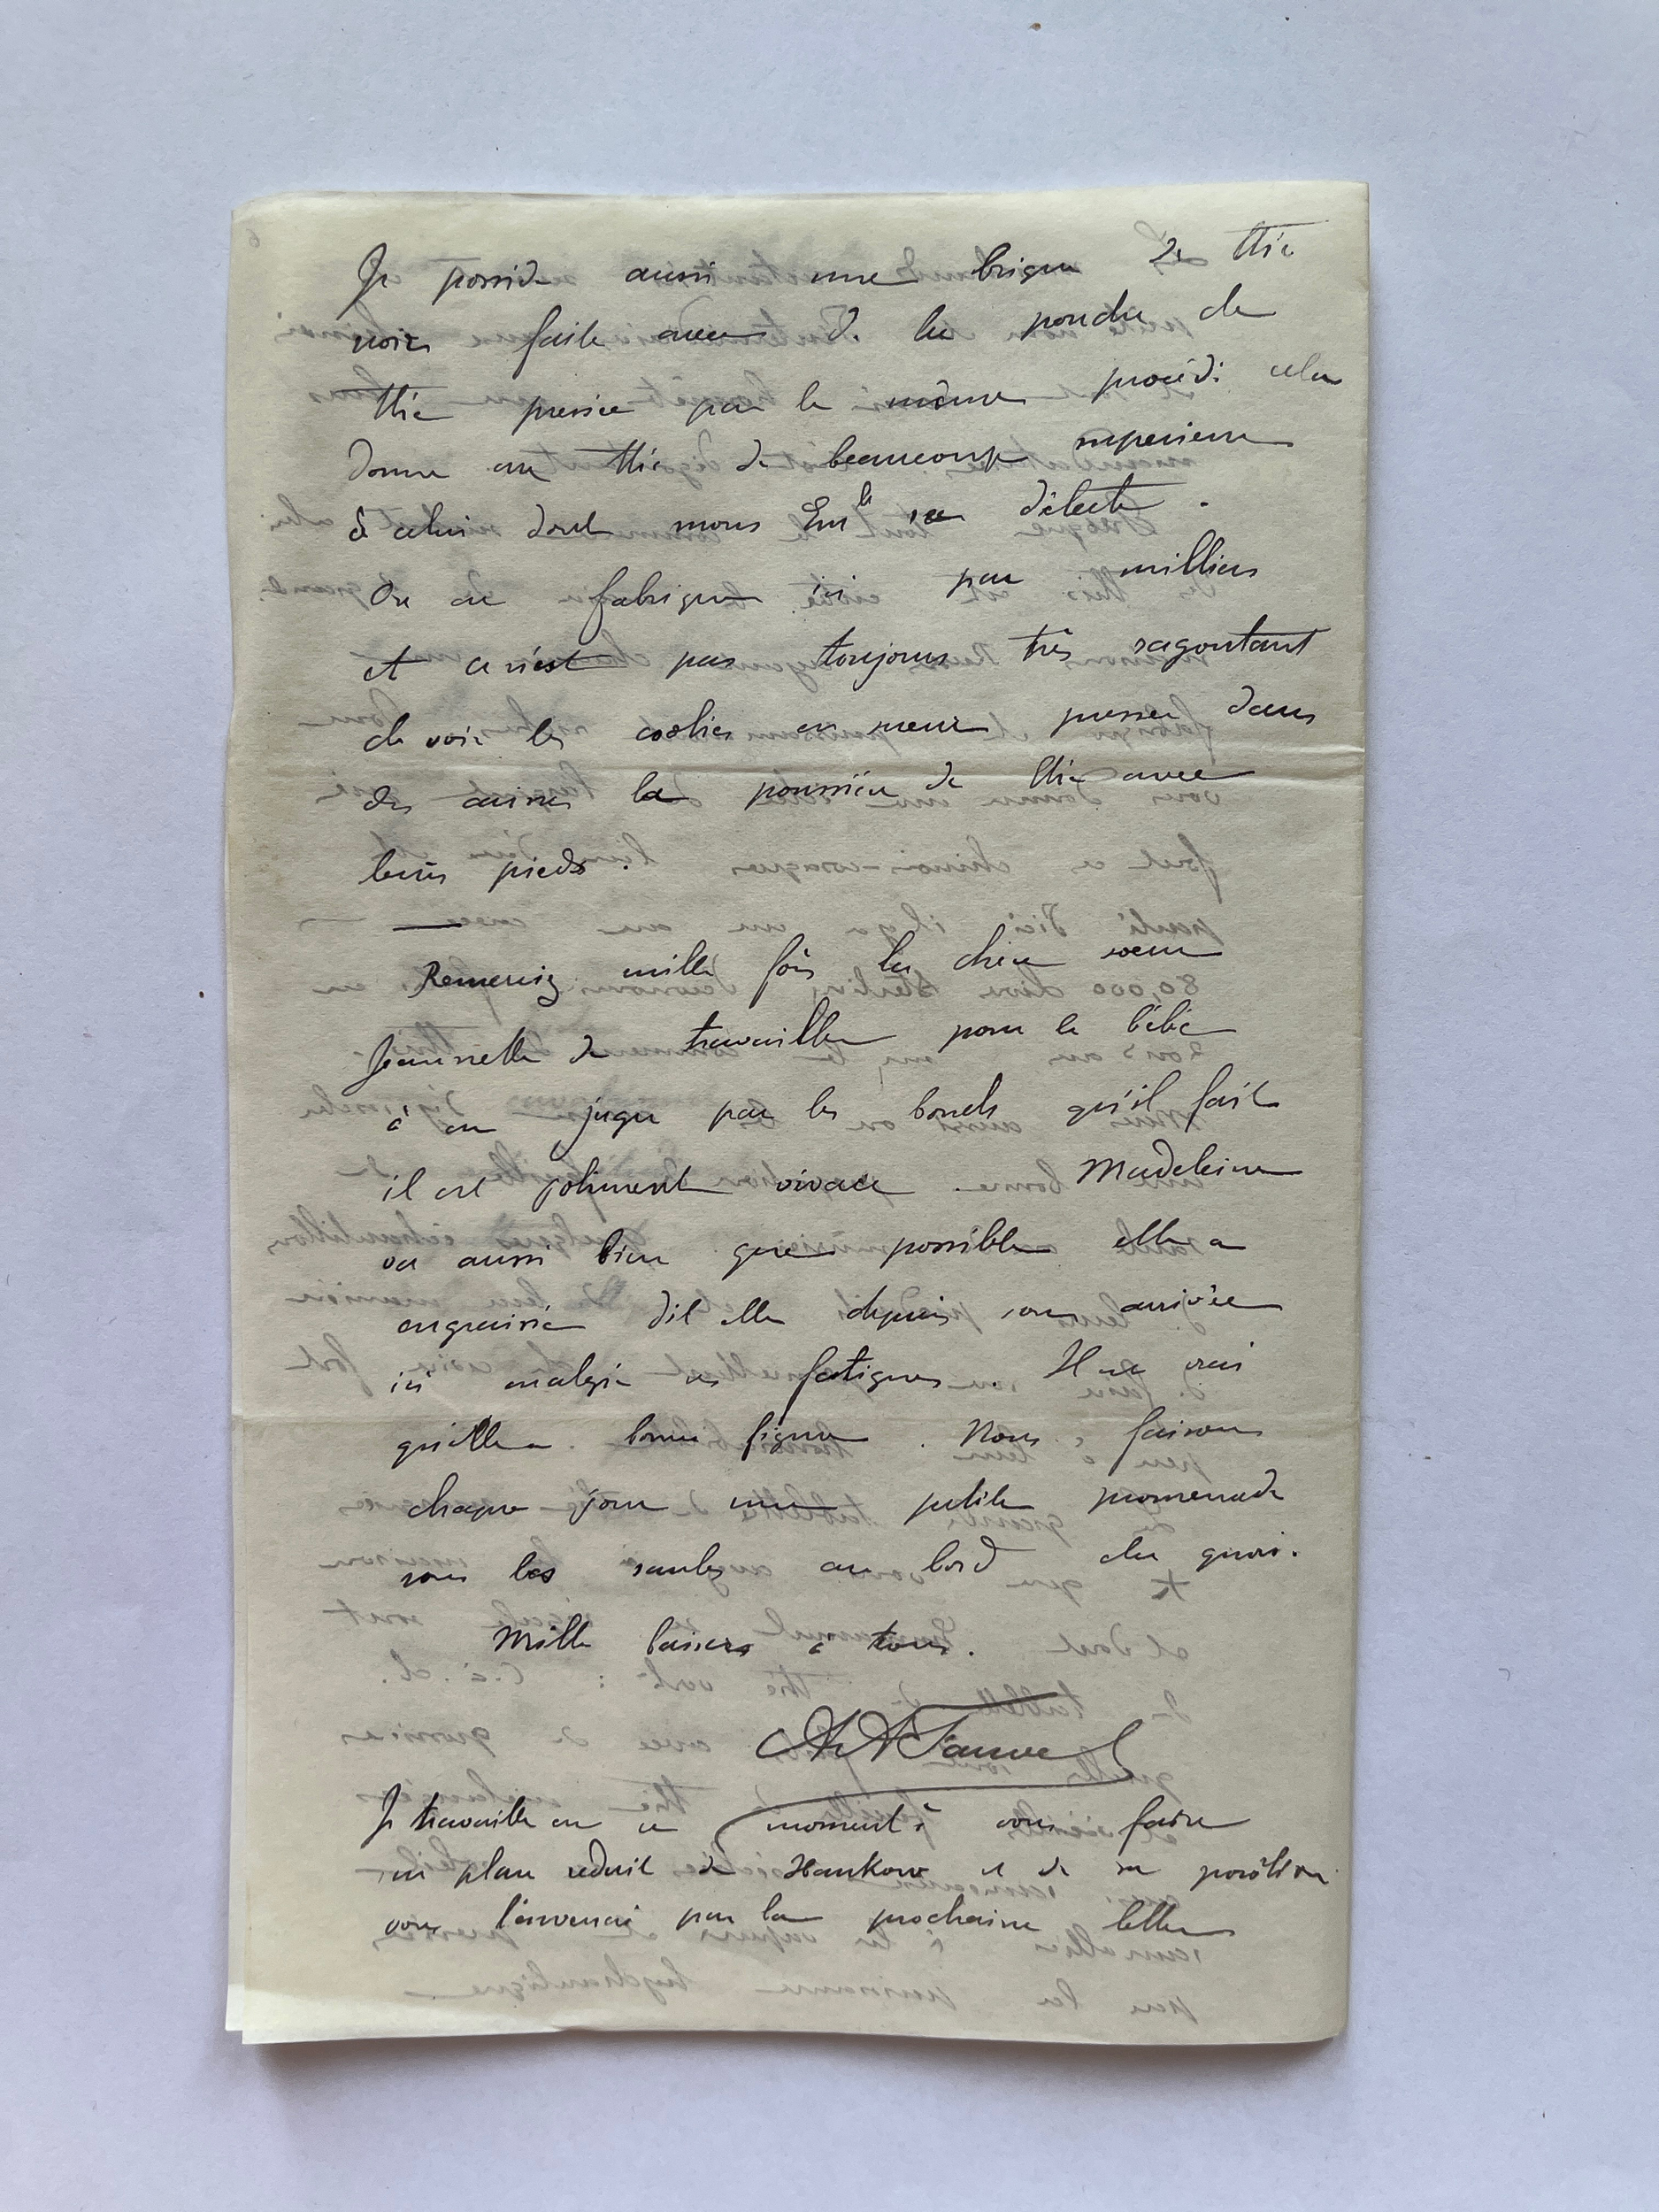 Je possède aussi une brique de thé
noir faite avec de la poudre de
thé pressée par le même procédé cela
donne un thé de beaucoup superieur
à celui dont mons Em^le se délecte.
On en fabrique ici par milliers
et ce n'est pas toujours très ragoutant
de voir les coolies en sueur presser dans
des caisses la poussière de thé avec
leurs pieds.
Remerciez mille fois la chère soeur
Jeannette de travailler pour le bébé
à en juger par les bonds qu'il fait
il est joliment vivace. Madeleine
va aussi bien que possible elle a
engraissé dit elle depuis son arrivée
ici malgré ses fatigues. Il est vrai
qu'elle a bonne figure. Nous faisons
chaque jour une petite promenade
sous les saules au bord du quai.
Mille baisers à tous.
AA Fauvel
Je travaille en ce moment à vous faire
un plan réduit de Hankow et de sa position
vous l'enverrai par la prochaine lettre